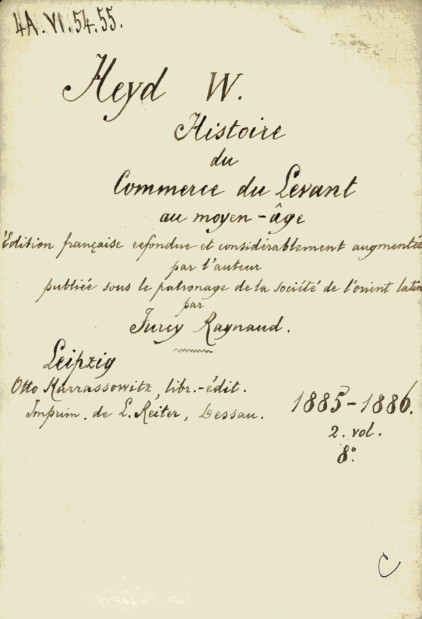 4A.VI.54.55.
Heyd W.
Histoire
du
Commerce du Levant
au moyen-âge
Edition française refondue et considérablement augmentée
par l'auteur
publiée sous le patronage de la société de l'orient latin
par
Furcy Raynaud.
Leipzig
Otto Harrassowitz, libr.-édit.
Imprim. de L. Reiter, Dessau.
1885-1886.
2. vol.
8°.
C